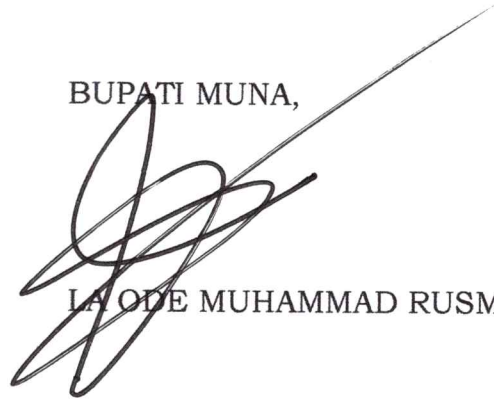 BUPATI MUNA,
LA ODE MUHAMMAD RUSM